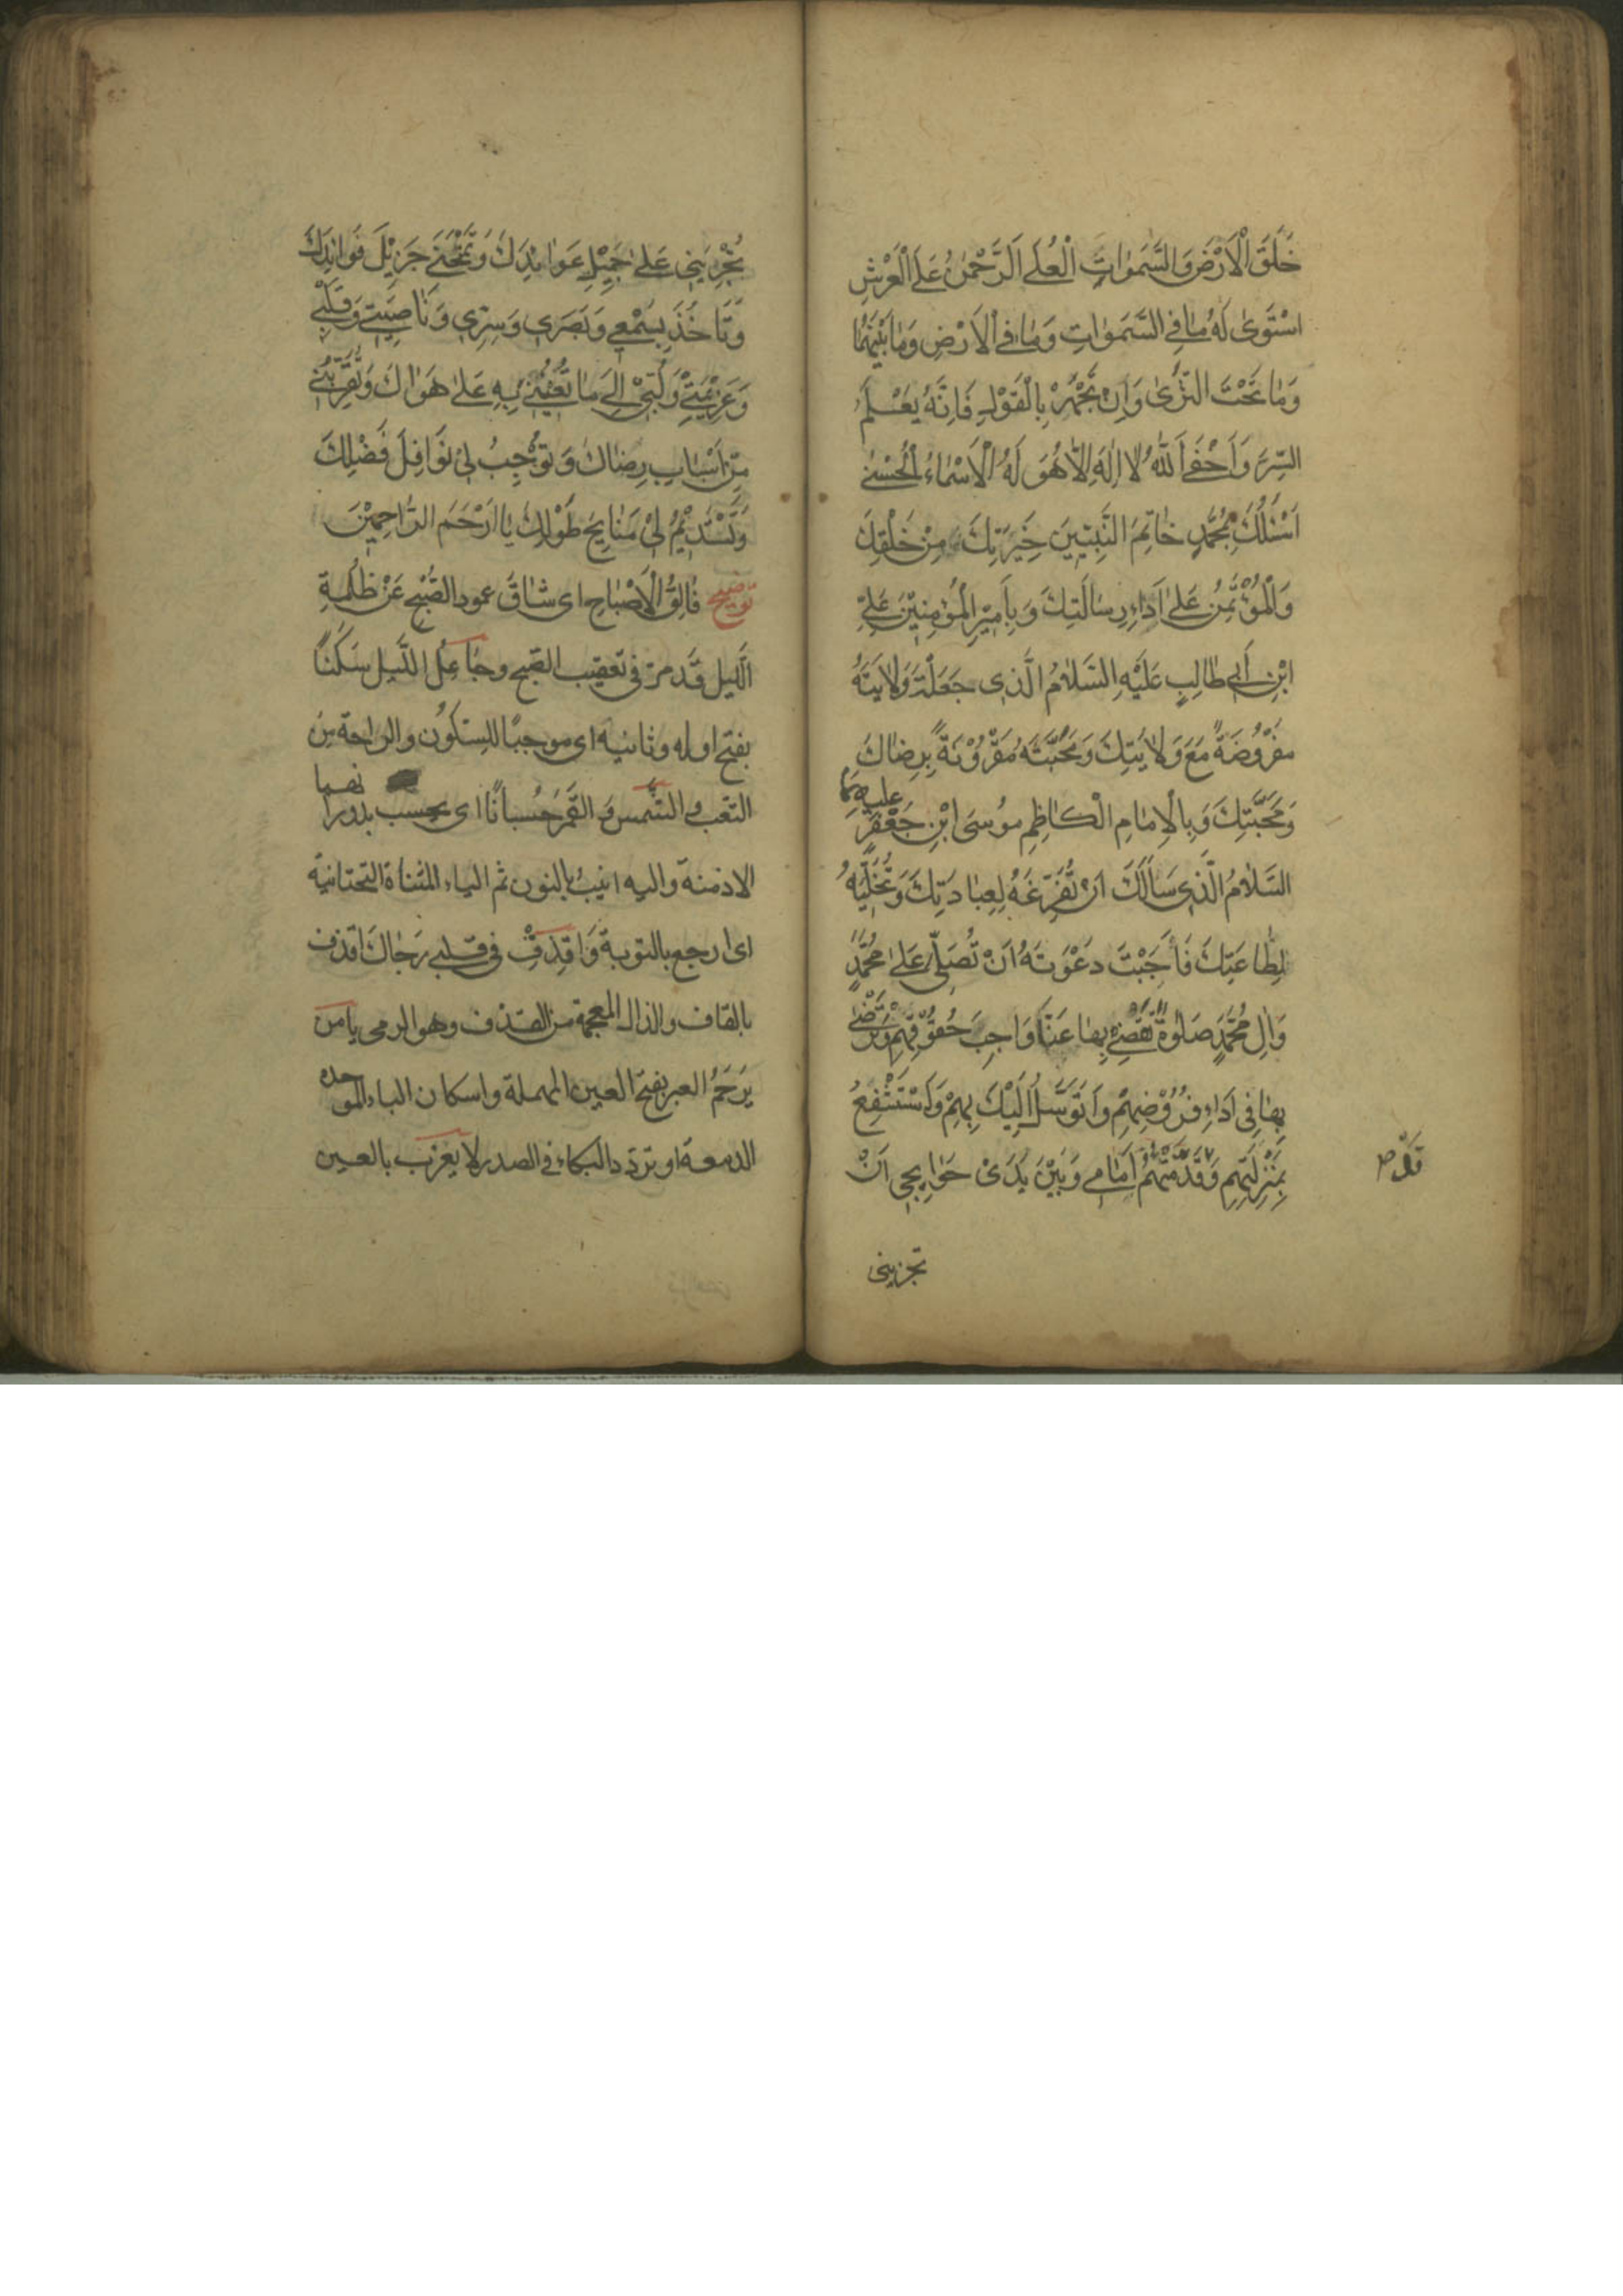 خَلَقَ الْاَرْضَ وَالسَّمٰوَاتِ الْعُلَى اَلرَّحْمٰنُ عَلَى الْعَرْشِ
اسْتَوٰى لَهُ مَا فِي السَّمٰوَاتِ وَمَا فِي الْاَرْضِ وَمَا بَيْنَهُمَا
وَمَا تَحْتَ الثَّرٰى وَاِنْ تَجْهَرْ بِالْقَوْلِ فَاِنَّهُ يَعْلَمُ
السِّرَّ وَاَخْفٰى اَللّٰهُ لَا اِلٰهَ اِلَّا هُوَ لَهُ الْاَسْمَاءُ الْحُسْنٰى
اَسْئَلُكَ بِمُحَمَّدٍ خَاتِمِ النَّبِيِّينَ خِيَرَتِكَ مِنْ خَلْقِكَ
وَالْمُؤْتَمَنِ عَلٰى اَدَاءِ رِسَالَتِكَ وَبِاَمِيْرِ الْمُؤْمِنِيْنَ عَلِيِّ
ابْنِ اَبِي طَالِبٍ عَلَيْهِ السَّلَامُ الَّذِي جَعَلْتَ وَلَايَتَهُ
مَفْرُوْضَةً مَعَ وَلَايَتِكَ وَمَحَبَّتَهُ مَقْرُوْنَةً بِرِضَاكَ
وَمَحَبَّتِكَ وَبِالْاِمَامِ الْكَاظِمِ مُوْسَى ابْنِ جَعْفَرٍ عليهما
السَّلَامُ الَّذِي سَاَلَكَ اَنْ تُفَرِّغَهُ لِعِبَادَتِكَ وَتُخَلِّيَهُ
لِطَاعَتِكَ فَاَجَبْتَ دَعْوَتَهُ اَنْ تُصَلِّيَ عَلٰى مُحَمَّدٍ
وَاٰلِ مُحَمَّدٍ صَلٰوةً تَقْضِيْ بِهَا عَنَّا وَاجِبَ حُقُوْقِهِمْ وَتَرْضٰى
بِهَا فِي اَدَاءِ فُرُوْضِهِمْ وَاَتَوَسَّلُ اِلَيْكَ بِهِمْ وَاَسْتَشْفِعُ
بِمَنْزِلَتِهِمْ وَقَدَّمْتُهُمْ اَمَامِي وَبَيْنَ يَدَيْ حَوَائِجِي اَنْ
تجزيني
تُجْرِيَنِي عَلٰى جَمِيْلِ عَوَائِدِكَ وَتَمْنَحَنِي جَزِيْلَ فَوَائِدِكَ
وَتَاْخُذَ بِسَمْعِي وَبَصَرِي وَسِرِّي وَنَاصِيَتِي وَقَلْبِي
وَعَزِيْمَتِي وَلُبِّيْ اِلٰى مَا تُعِيْنُنِي بِهِ عَلٰى هَوَاكَ وَتُقَرِّبُنِي
مِنْ اَسْبَابِ رِضَاكَ وَتُوْجِبُ لِيْ نَوَافِلَ فَضْلِكَ
وَتَسْتَدِيْمُ لِيْ مَنَايِحَ طَوْلِكَ يَا اَرْحَمَ الرَّاحِمِيْنَ
توضيح فَالِقُ الْاَصْبَاحِ اى شاقّ عمود الصُّبْحِ عَنْ ظُلْمَةِ
اللَّيل قد مرّ فى تعقيب الصبح وجَاعِلُ اللَّيل سَكَنًا
بفتح اوله وثانيه اى موجبًا للسّكُون والراحة من
التعب والشَّمس وَالقَمَرَ حُسبانًا اى بحسب بدورانهما
الازمنة واليه انيبُ بالنون ثم الياء المثناة التحتانية
اى ارجع بالتوبة وَاقذِفْ فى قلبى رَجَاكَ اقذف
بالقاف والذال المعجمة من القذف وهو الرمى يا من
يَرْحَمُ العبر بفتح العين المهملة واسكان الباء الموحده
الدمعة او تردّد البكاء فى الصدر لا يعزب بالعين